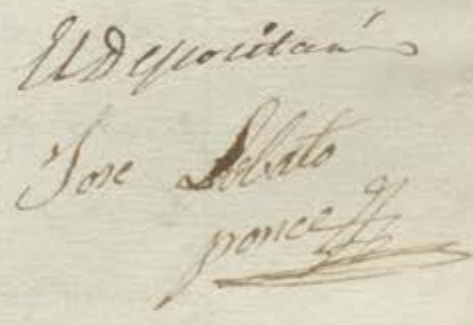 El Depocitario
Jose Lobato
ponce